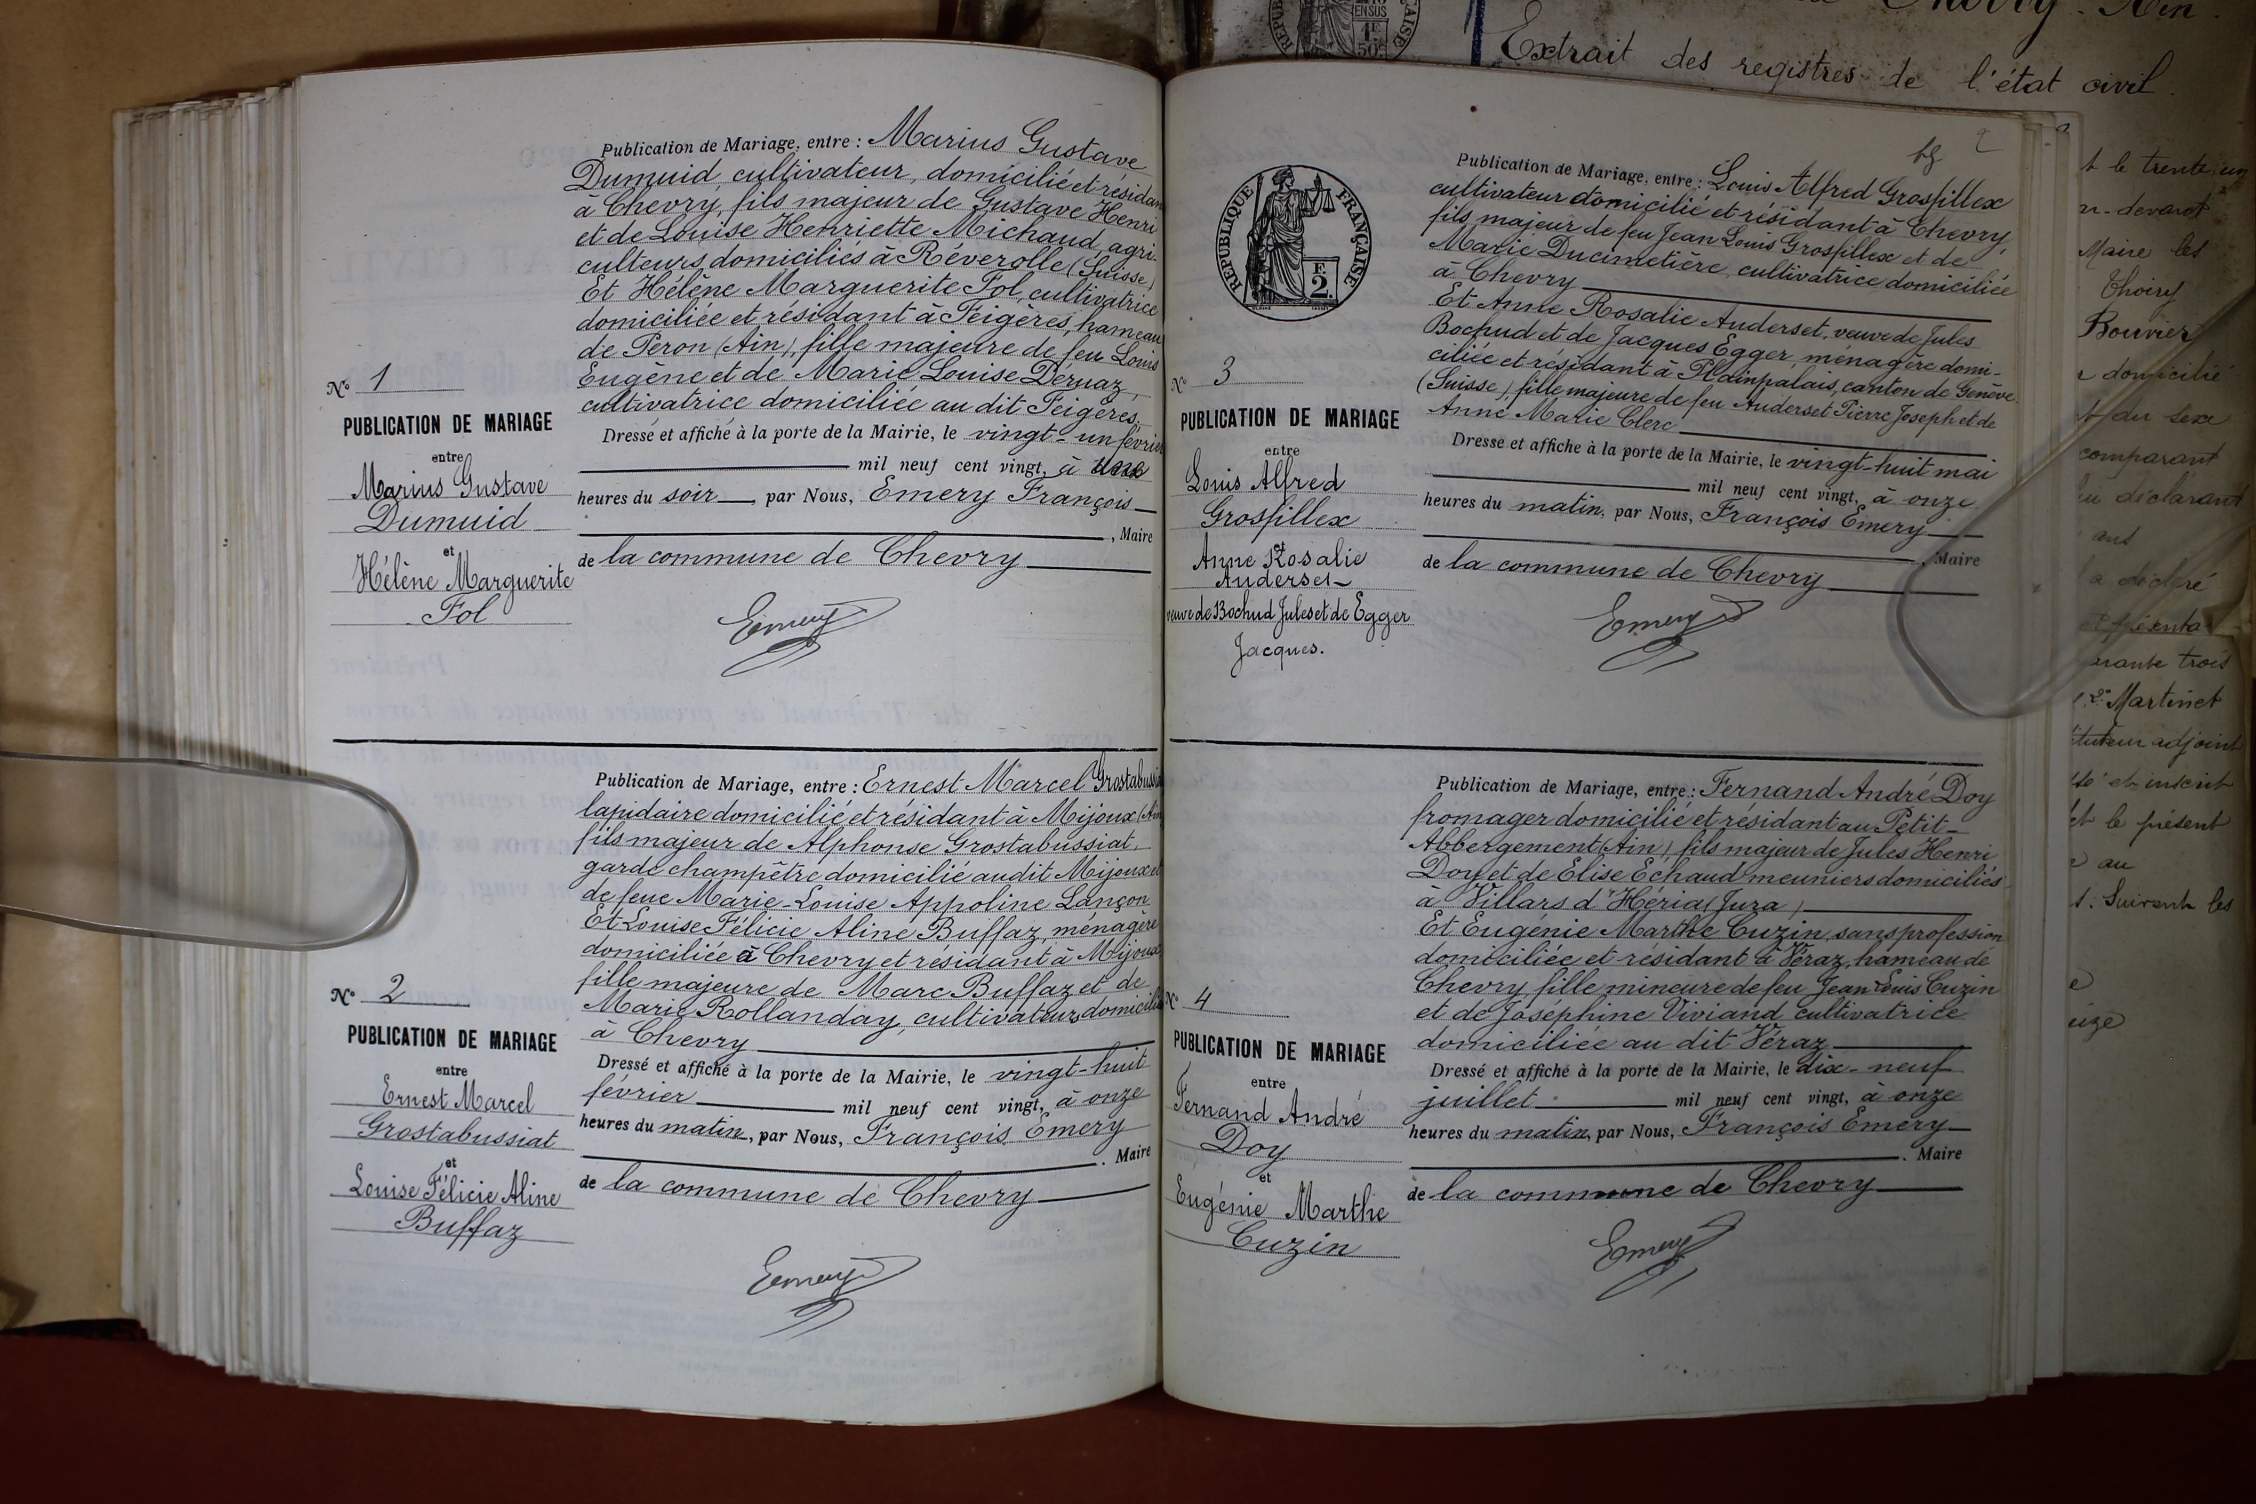 Publication de Mariage, entre : Marius Gustave
Dumuid, cultivateur, domicilié et résidan
à Chevry, fils majeur de Gustave Henri
et de Louise Henriette Michaud agri-
culteurs domiciliés à Réverolle (Suisse)
Et Hélène Marguerite Fol, cultivatrice
domiciliée et résidant à Feigères, hameau
de Péron (Ain), fille majeure de feu Louis
Eugène et de Marie Louise Déruaz,
cultivatrice domiciliée au dit Feigères.
Dressé et affiché à la porte de la Mairie, le vingt-un février
mil neuf cent vingt, à une
heures du soir, par Nous, Emery François
, Maire
de la commune de Chevry
Emery
N° 1
PUBLICATION DE MARIAGE
entre
Marius Gustave
Dumuid
et
Hélène Marguerite
Fol
Publication de Mariage, entre : Ernest Marcel Grostabussia
lapidaire domicilié et résidant à Mijoux (Ain
fils majeur de Alphonse Grostabussiat,
garde champêtre domicilié audit Mijoux et
de feue Marie-Louise Appoline Lançon
Et Louise Félicie Aline Buffaz, ménagère
domiciliée à Chevry et résidant à Mijoux
fille majeure de Marc Buffaz et de
Marie Rollanday, cultivateurs domiciliés
à Chevry
Dressé et affiché à la porte de la Mairie, le vingt-huit
février mil neuf cent vingt, à onze
heures du matin, par Nous, François Emery
. Maire
de la commune de Chevry
Emery
N° 2
PUBLICATION DE MARIAGE
entre
Ernest Marcel
Grostabussiat
et
Louise Félicie Aline
Buffaz
2
RÉPUBLIQUE FRANÇAISE
F.
2.
Publication de Mariage, entre : Louis Alfred Grosfillex
cultivateur domicilié et résidant à Chevry,
fils majeur de feu Jean Louis Grosfillex et de
Marie Ducimetière, cultivatrice domiciliée
à Chevry
Et Anne Rosalie Auderset, veuve de Jules
Bochud et de Jacques Egger, ménagère domi-
ciliée et résidant à Plainpalais, canton de Genève
(Suisse), fille majeure de feu Auderset Pierre Joseph et de
Anne Marie Clerc
Dressé et affiché à la porte de la Mairie, le vingt-huit mai
mil neuf cent vingt, à onze
heures du matin, par Nous, François Emery
, Maire
de la commune de Chevry
Emery
N° 3
PUBLICATION DE MARIAGE
entre
Louis Alfred
Grosfillex
et
Anne Rosalie
Auderset
veuve de Bochud Jules et de Egger
Jacques.
Publication de Mariage, entre : Fernand André Doy
fromager domicilié et résidant au Petit-
Abbergement (Ain), fils majeur de Jules Henri
Doy et de Elise Echaud meuniers domiciliés
à Villars d'Héria (Jura)
Et Eugénie Marthe Cuzin, sans profession
domiciliée et résidant à Véraz, hameau de
Chevry, fille mineure de feu Jean Louis Cuzin
et de Joséphine Viviand cultivatrice
domiciliée au dit Véraz
Dressé et affiché à la porte de la Mairie, le dix-neuf
juillet mil neuf cent vingt, à onze
heures du matin, par Nous, François Emery
. Maire
de la commune de Chevry
Emery
N° 4
PUBLICATION DE MARIAGE
entre
Fernand André
Doy
et
Eugénie Marthe
Cuzin
Chevry - Ain.
Extrait des registres de l'état civil.
t le trente un
n. devant
Maire les
Thoiry
Bouvier
domicilié
t du sexe
comparant
déclarant
ans
a déclaré
présenta
arante trois
Martinet
tuteur adjoint
et inscrit
et le présent
au
t. Suivent les